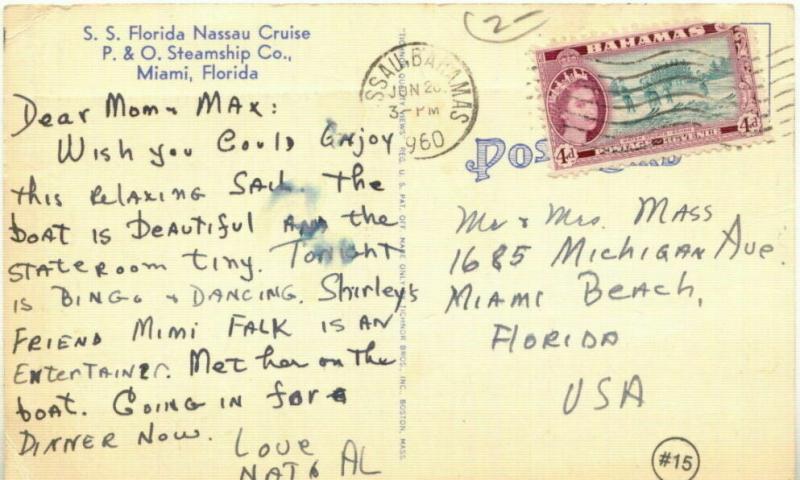 S. S. Florida Nassau Cruise
P. & O. Steamship Co.,
Miami, Florida
Dear Mom & MAX:
Wish you Could Enjoy
this Relaxing Sail. The
boat is Beautiful And the
Stateroom tiny. Tonight
is BINGO & DANCING. Shirley's
FRIEND Mimi FALK is AN
Entertainer. Met her on the
boat. Going in for
DINNER NOW.
Love
NAT & AL
2
SSAU, BAHAMAS
JUN 26
3-PM
1960
BAHAMAS
POSTAGE REVENUE
4d
4d
Mr & Mrs. MASS
1685 Michigan Ave.
Miami Beach,
FLORIDA
USA
REG. U. S. PAT. OFF. MADE ONLY
TICHNOR BROS., INC., BOSTON, MASS.
#15